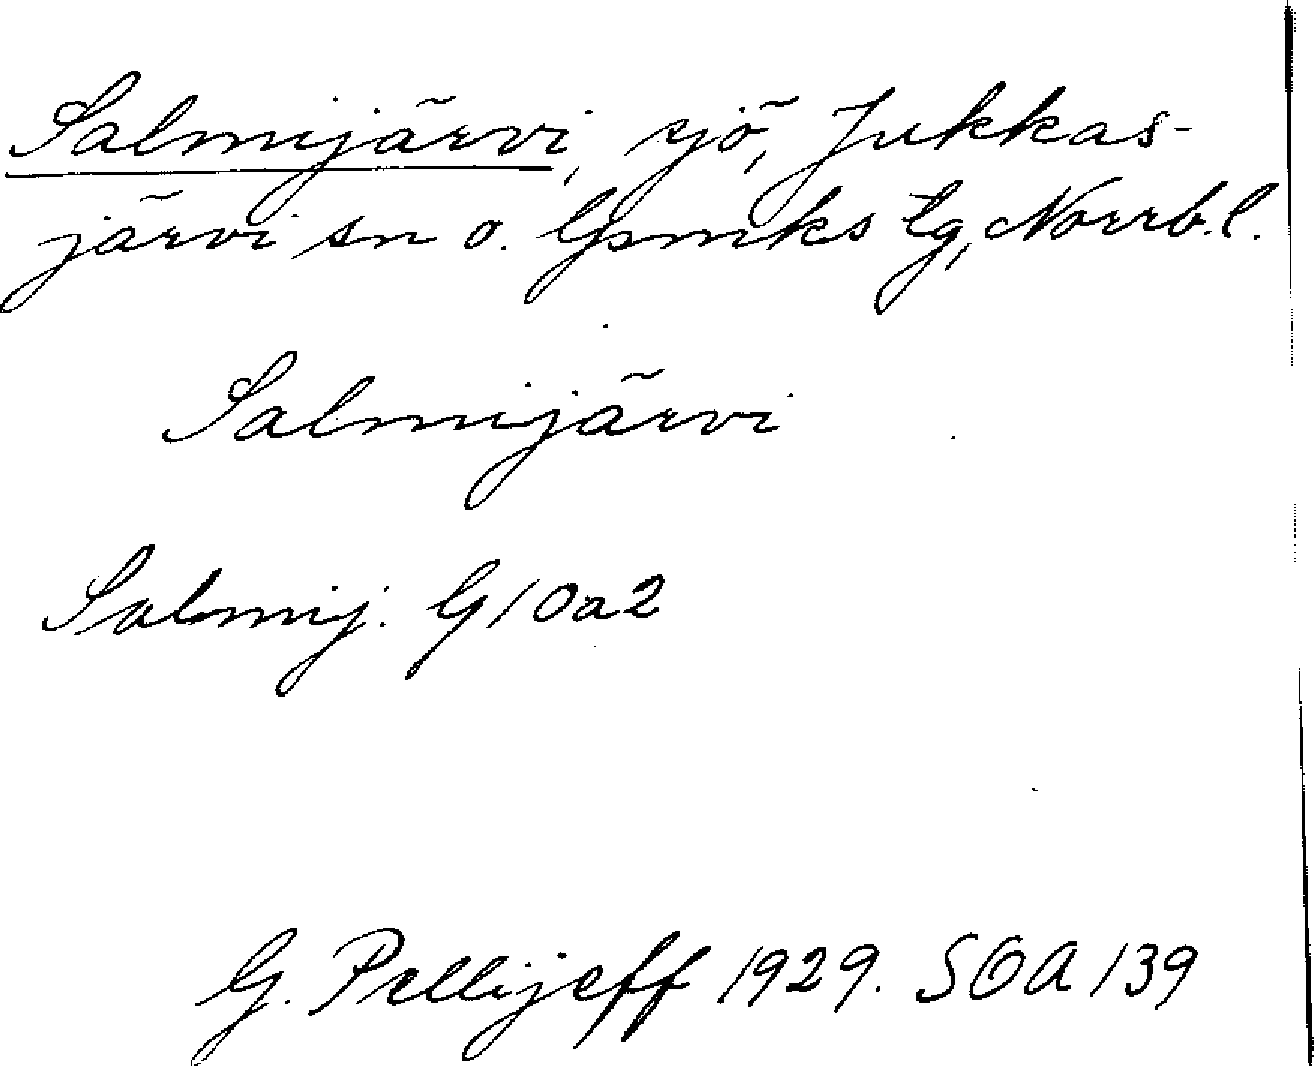 Salmijärvi, sjö, Jukkas-
järvi sn o. Gpmks tg, Norrb. l.
Salmijärvi
Salmij. G10a2
G. Pellijeff 1929. SOA 139